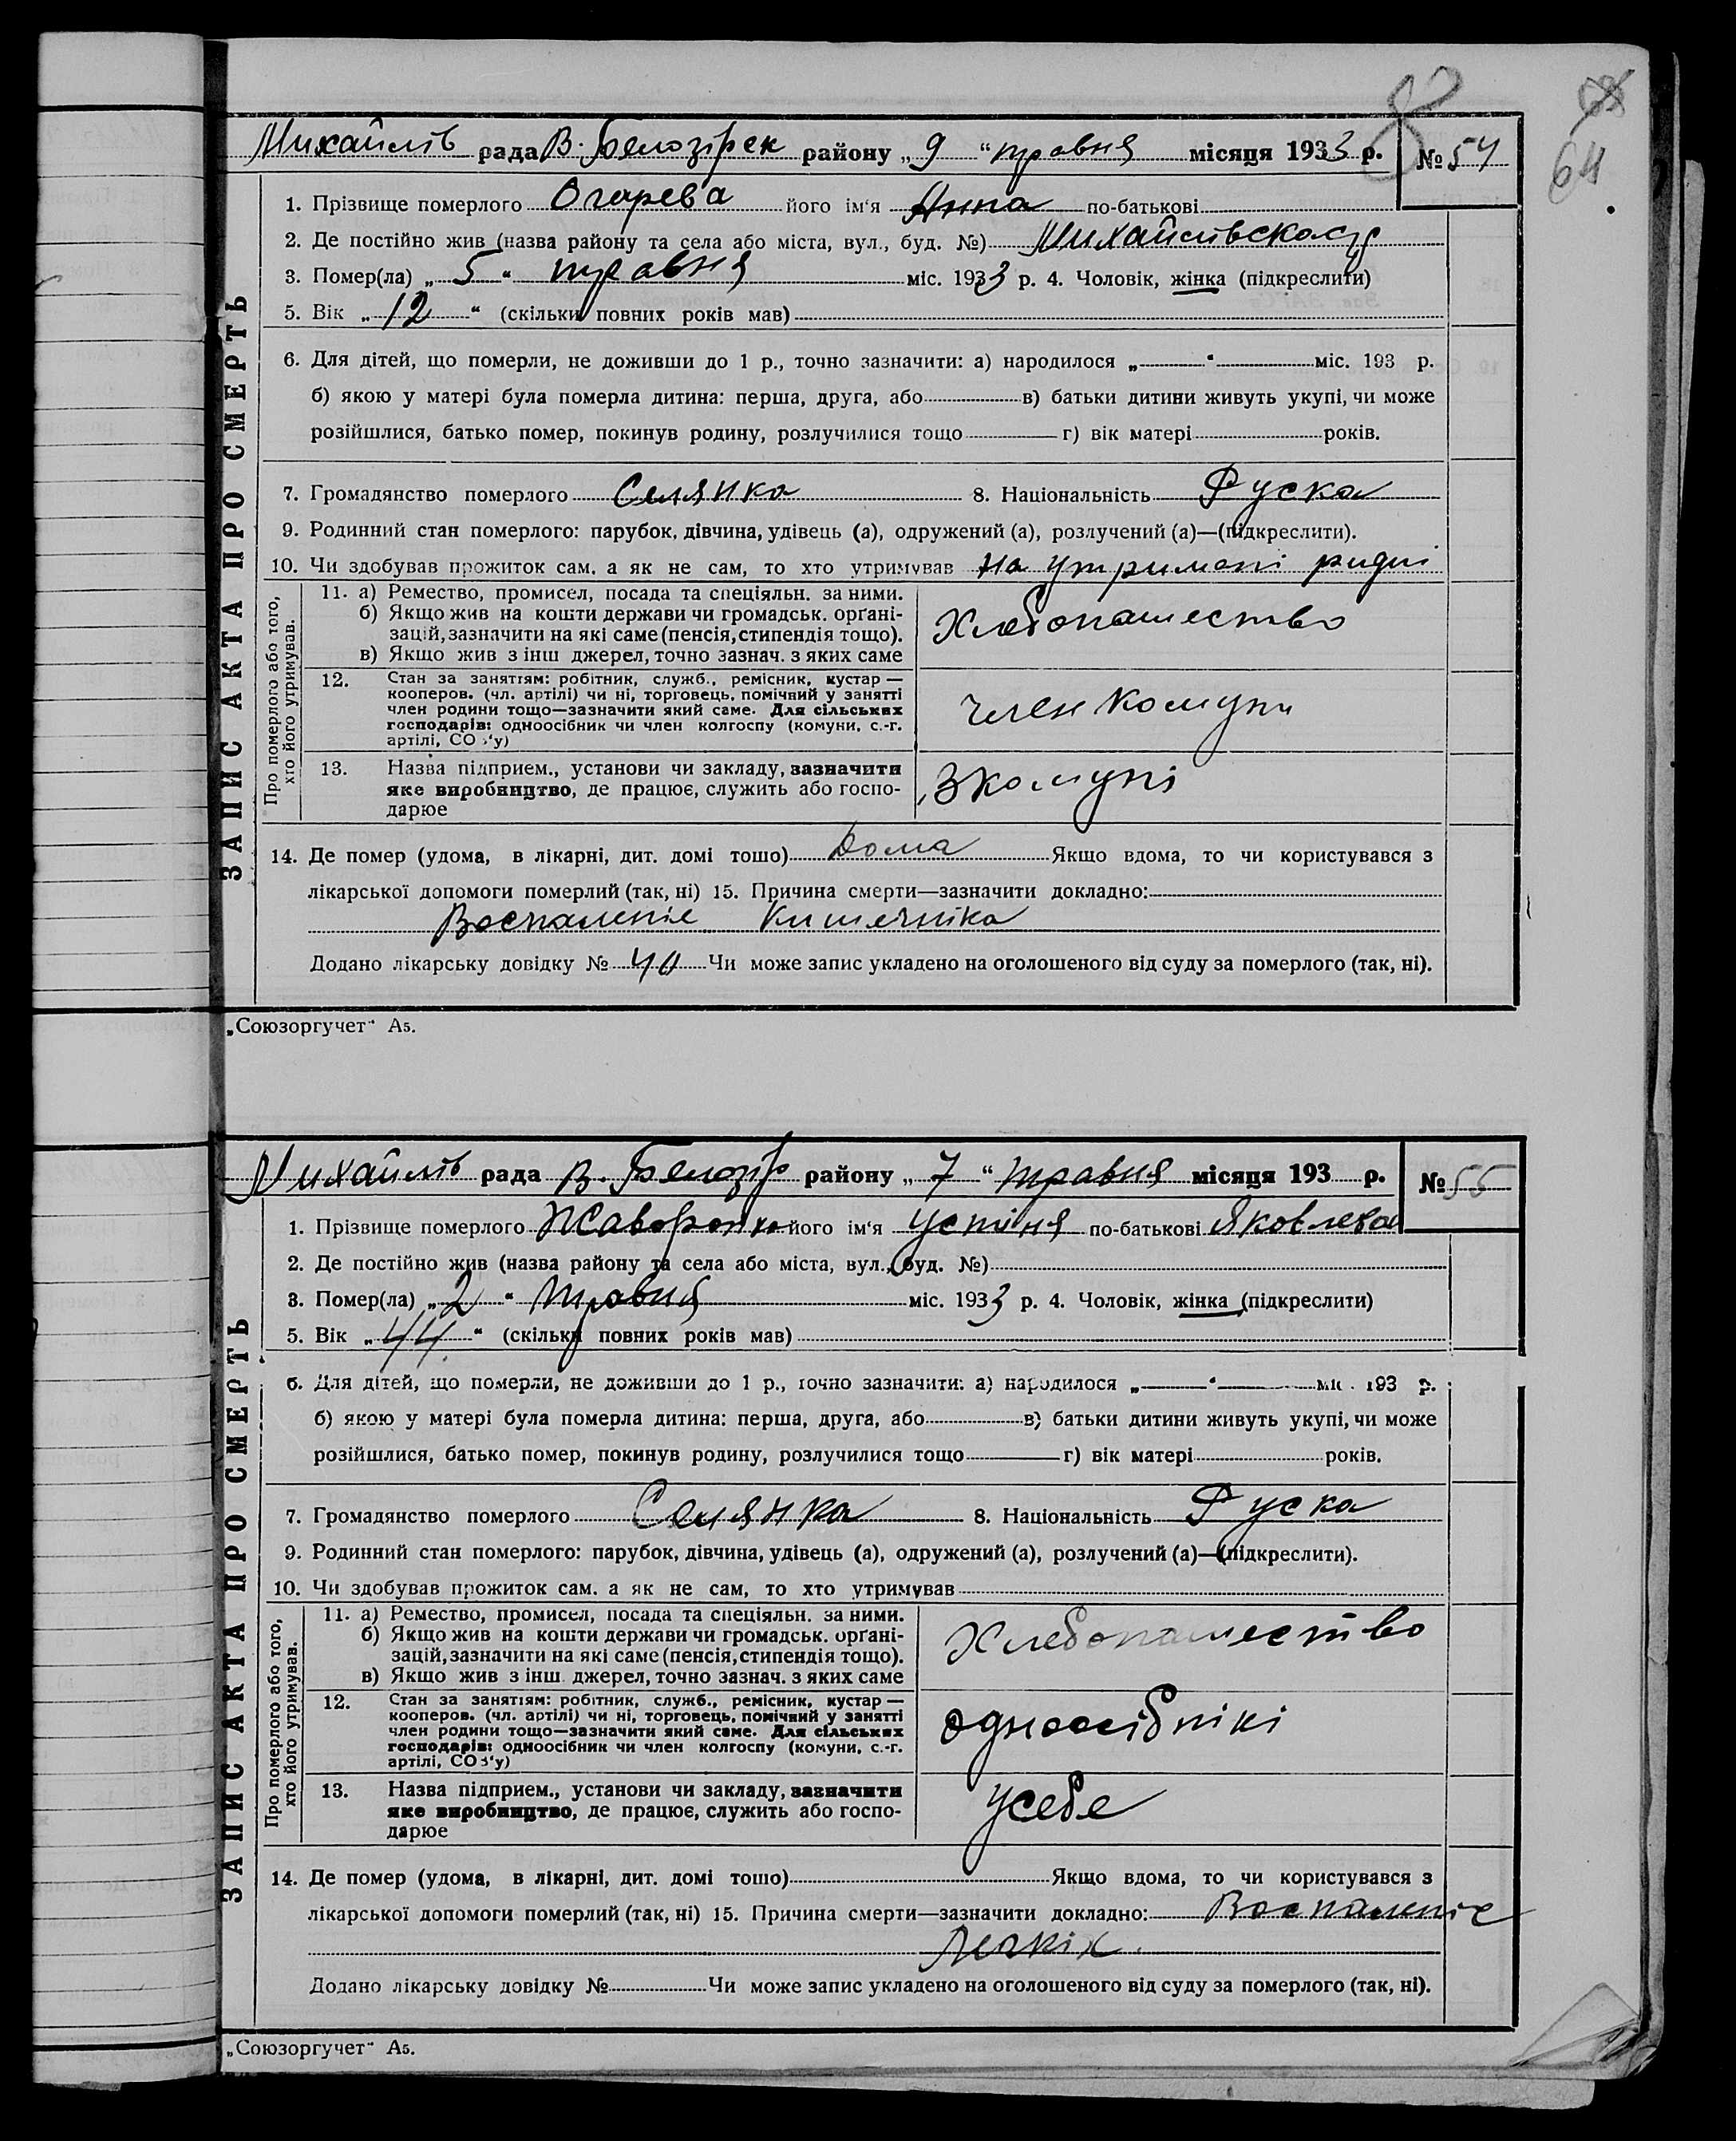 64
Михайлів рада В. Белозірск району „ 9 “ травня місяця 1933 р. № 54
ЗАПИС АКТА ПРО СМЕРТЬ
1. Прізвище померлого Огарева його ім'я Анна по-батькові
2. Де постійно жив (назва району та села або міста, вул., буд. №)
3. Помер(ла) „ 5 “ травня міс. 1933 р. 4. Чоловік, жінка (підкреслити)
5. Вік „ 12 “ (скільки повних років мав)
6. Для дітей, що померли, не доживши до 1 р., точно зазначити: а) народилося „ “ міс. 193 р.
б) якою у матері була померла дитина: перша, друга, або в) батьки дитини живуть укупі, чи може
розійшлися, батько помер, покинув родину, розлучилися тощо г) вік матері років.
7. Громадянство померлого Селянка 8. Національність Руска
9. Родинний стан померлого: парубок, дівчина, удівець (а), одружений (а), розлучений (а)—(підкреслити).
10. Чи здобував прожиток сам, а як не сам, то хто утримував на утримані ридні
Про померлого або того,
хто його утримував.
11. а) Ремество, промисел, посада та спеціяльн. за ними.
б) Якщо жив на кошти держави чи громадськ. орґані-
зацій, зазначити на які саме (пенсія, стипендія тощо).
в) Якщо жив з інш джерел, точно зазнач. з яких саме
Хлебопашество
12. Стан за заняттям: робітник, служб., ремісник, кустар —
кооперов. (чл. артілі) чи ні, торговець, помічний у занятті
член родини тощо—зазначити який саме. Для сільських
господарів: одноосібник чи член колгоспу (комуни, с.-г.
артілі, СОЗ'у)
член комуни
13. Назва підприєм., установи чи закладу, зазначити
яке виробництво, де працює, служить або госпо-
дарює
З комуні
14. Де помер (удома, в лікарні, дит. домі тошо) Дома Якщо вдома, то чи користувався з
лікарської допомоги померлий (так, ні) 15. Причина смерти—зазначити докладно:
Воспаленіе Кишечніка
Додано лікарську довідку № 40 Чи може запис укладено на оголошеного від суду за померлого (так, ні).
„Союзоргучет“ А5.
Михайлів рада В. Белозір району „ 7 “ травня місяця 193 р. № 55
ЗАПИС АКТА ПРО СМЕРТЬ
1. Прізвище померлого Жаворонко його ім'я Устіня по-батькові Яковлевая
2. Де постійно жив (назва району та села або міста, вул., буд. №)
3. Помер(ла) „ 2 “ травня міс. 1933 р. 4. Чоловік, жінка (підкреслити)
5. Вік „ 44 “ (скільки повних років мав)
6. Для дітей, що померли, не доживши до 1 р., точно зазначити: а) народилося „ “ міс. 193 р.
б) якою у матері була померла дитина: перша, друга, або в) батьки дитини живуть укупі, чи може
розійшлися, батько помер, покинув родину, розлучилися тощо г) вік матері років.
7. Громадянство померлого Селянка 8. Національність Руска
9. Родинний стан померлого: парубок, дівчина, удівець (а), одружений (а), розлучений (а)—(підкреслити).
10. Чи здобував прожиток сам, а як не сам, то хто утримував
Про померлого або того,
хто його утримував.
11. а) Ремество, промисел, посада та спеціяльн. за ними.
б) Якщо жив на кошти держави чи громадськ. орґані-
зацій, зазначити на які саме (пенсія, стипендія тощо).
в) Якщо жив з інш. джерел, точно зазнач. з яких саме
Хлебопашество
12. Стан за заняттям: робітник, служб., ремісник, кустар —
кооперов. (чл. артілі) чи ні, торговець, помічний у занятті
член родини тощо—зазначити який саме. Для сільських
господарів: одноосібник чи член колгоспу (комуни, с.-г.
артілі, СОЗ'у)
одноосібнікі
13. Назва підприєм., установи чи закладу, зазначити
яке виробництво, де працює, служить або госпо-
дарює
усебе
14. Де помер (удома, в лікарні, дит. домі тошо) Якщо вдома, то чи користувався з
лікарської допомоги померлий (так, ні) 15. Причина смерти—зазначити докладно: Воспаленіе
Легкіх.
Додано лікарську довідку № Чи може запис укладено на оголошеного від суду за померлого (так, ні).
„Союзоргучет“ А5.